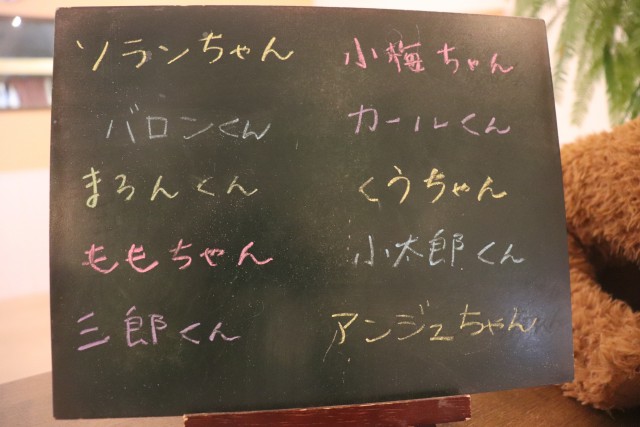 ソランちゃん
バロンくん
まろんくん
ももちゃん
三郎くん
小梅ちゃん
カールくん
くうちゃん
小太郎くん
アンジュちゃん